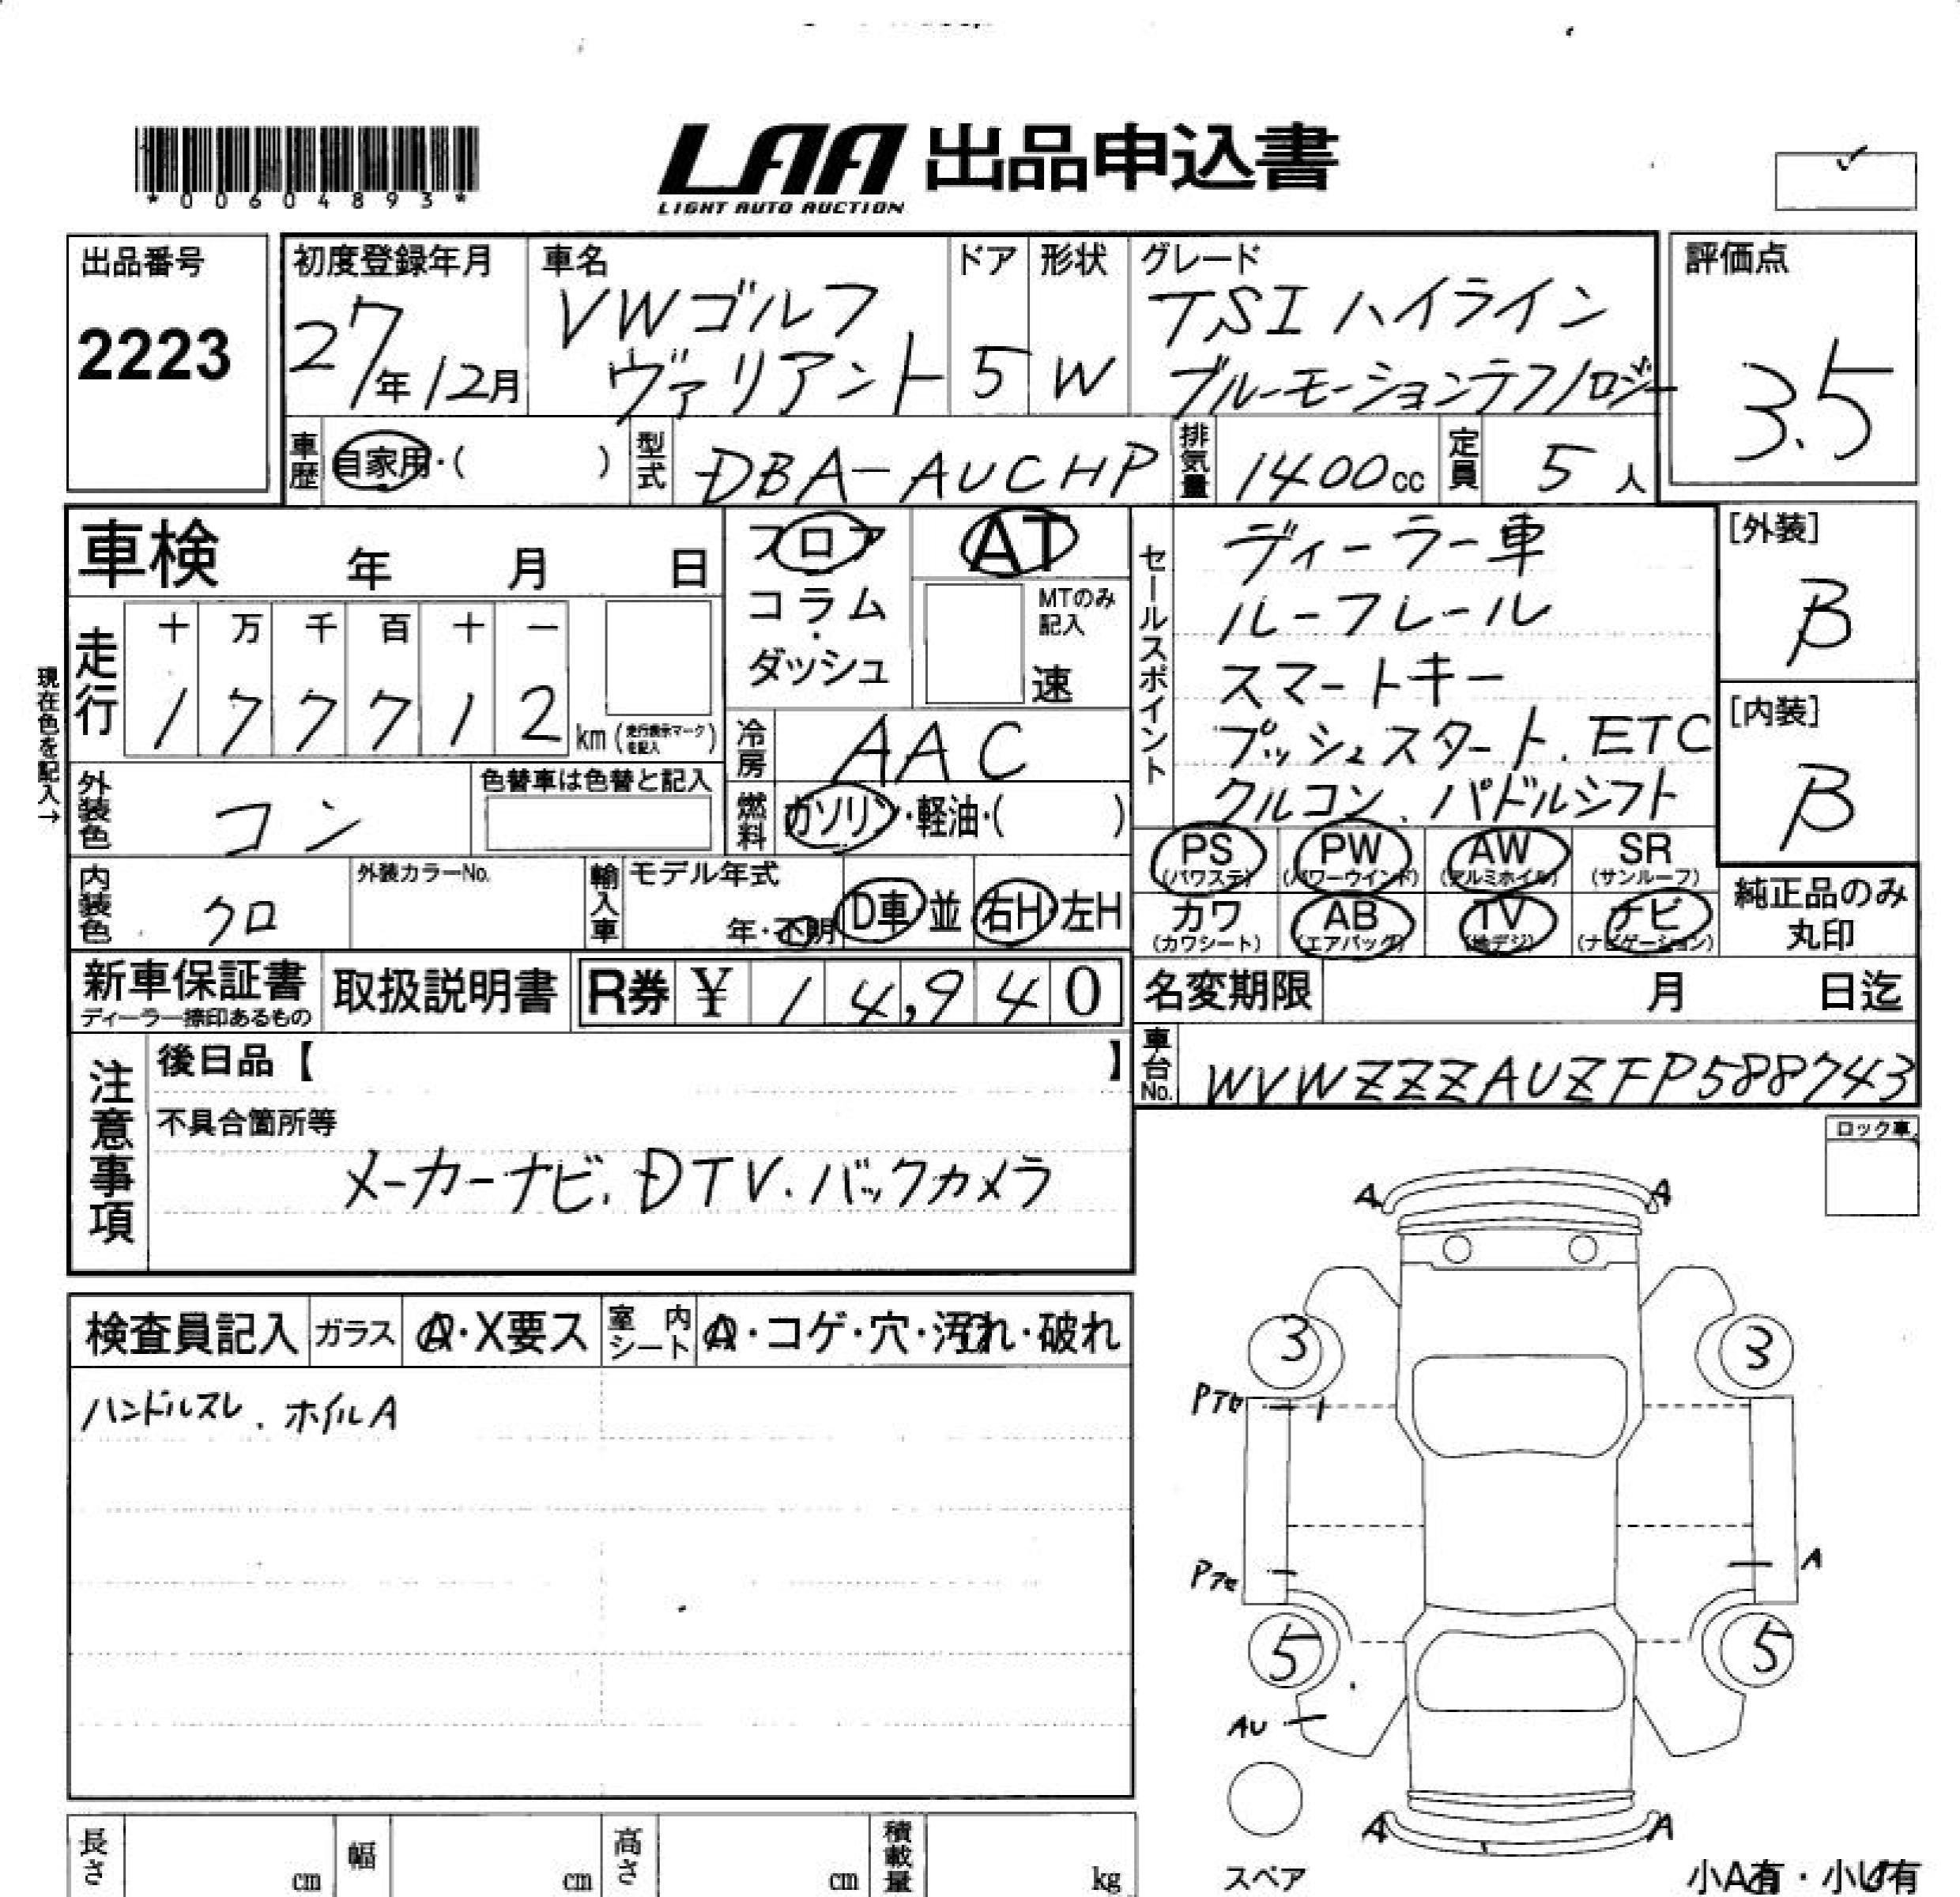 *00604893*
LAA 出品申込書
LIGHT AUTO AUCTION
出品番号
2223
初度登録年月
27年12月
車名
VWゴルフ
ヴァリアント
ドア
5
形状
W
グレード
TSI ハイライン
ブルーモーションテクノロジー
評価点
3.5
車歴
自家用・( )
型式
DBA-AUCHP
排気量
1400cc
定員
5人
車検 年 月 日
フロア
コラム
・
ダッシュ
AT
MTのみ
記入
速
セールスポイント
ディーラー車
ルーフレール
スマートキー
プッシュスタート、ETC
クルコン、パドルシフト
[外装]
B
[内装]
B
現在色を記入→
走行
十 万 千 百 十 一
1 7 7 7 1 2 km (走行表示マークを記入)
冷房
AAC
外装色
コン
色替車は色替と記入
燃料
ガソリン・軽油・( )
PS
(パワステ)
PW
(パワーウインド)
AW
(アルミホイル)
SR
(サンルーフ)
内装色
クロ
外装カラーNo.
輸入車
モデル年式
年・不明
D車 並
右H 左H
カワ
(カワシート)
AB
(エアバッグ)
TV
(地デジ)
ナビ
(ナビゲーション)
純正品のみ
丸印
新車保証書
ディーラー捺印あるもの
取扱説明書
R券 ¥ 14,940
名変期限 月 日迄
車台No.
WVWZZZAUZFP588743
注意事項
後日品【 】
不具合箇所等
メーカーナビ、DTV、バックカメラ
ロック車
検査員記入
ガラス
A・X要ス
室内シート
A・コゲ・穴・汚れ・破れ
ハンドルスレ、ホイルA
A A
3 3
Pアセ
Pアセ
A
5 5
AU
A A
スペア
小A有・小U有
長さ cm
幅 cm
高さ cm
積載量 kg